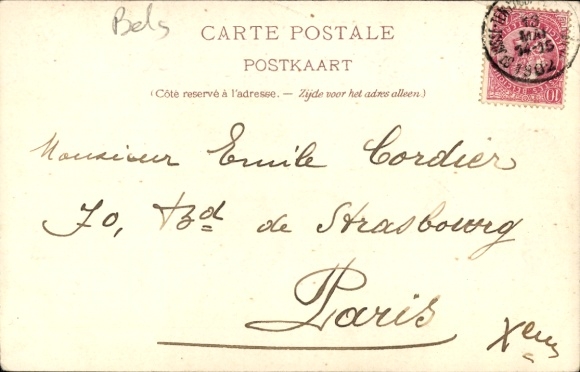 Bels
CARTE POSTALE
POSTKAART
(Côté reservé à l'adresse. — Zijde voor het adres alleen.)
13
MAI
1902
10
Monsieur Emile Cordier
70, Bd de Strasbourg
Paris
Xème